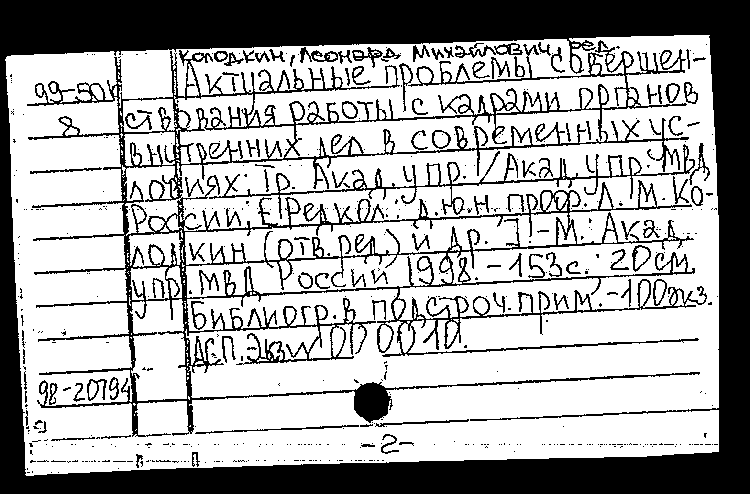 Колодкин, Леонард Михайлович, ред.
99-50к Актуальные проблемы совершен-
8 ствования работы с кадрами органов
внутренних дел в современных ус-
ловиях: Тр. Акад. упр. / Акад. упр. МВД
России; [Редкол.: д.ю.н. проф. Л. М. Ко-
лодкин (отв. ред.) и др.]. - М.: Акад.
упр. МВД России, 1998. - 153 с.: 20 см.
Библиогр. в подстроч. прим. - 100 экз.
ДСП. Экз. № 000010.
98-20794
-2-